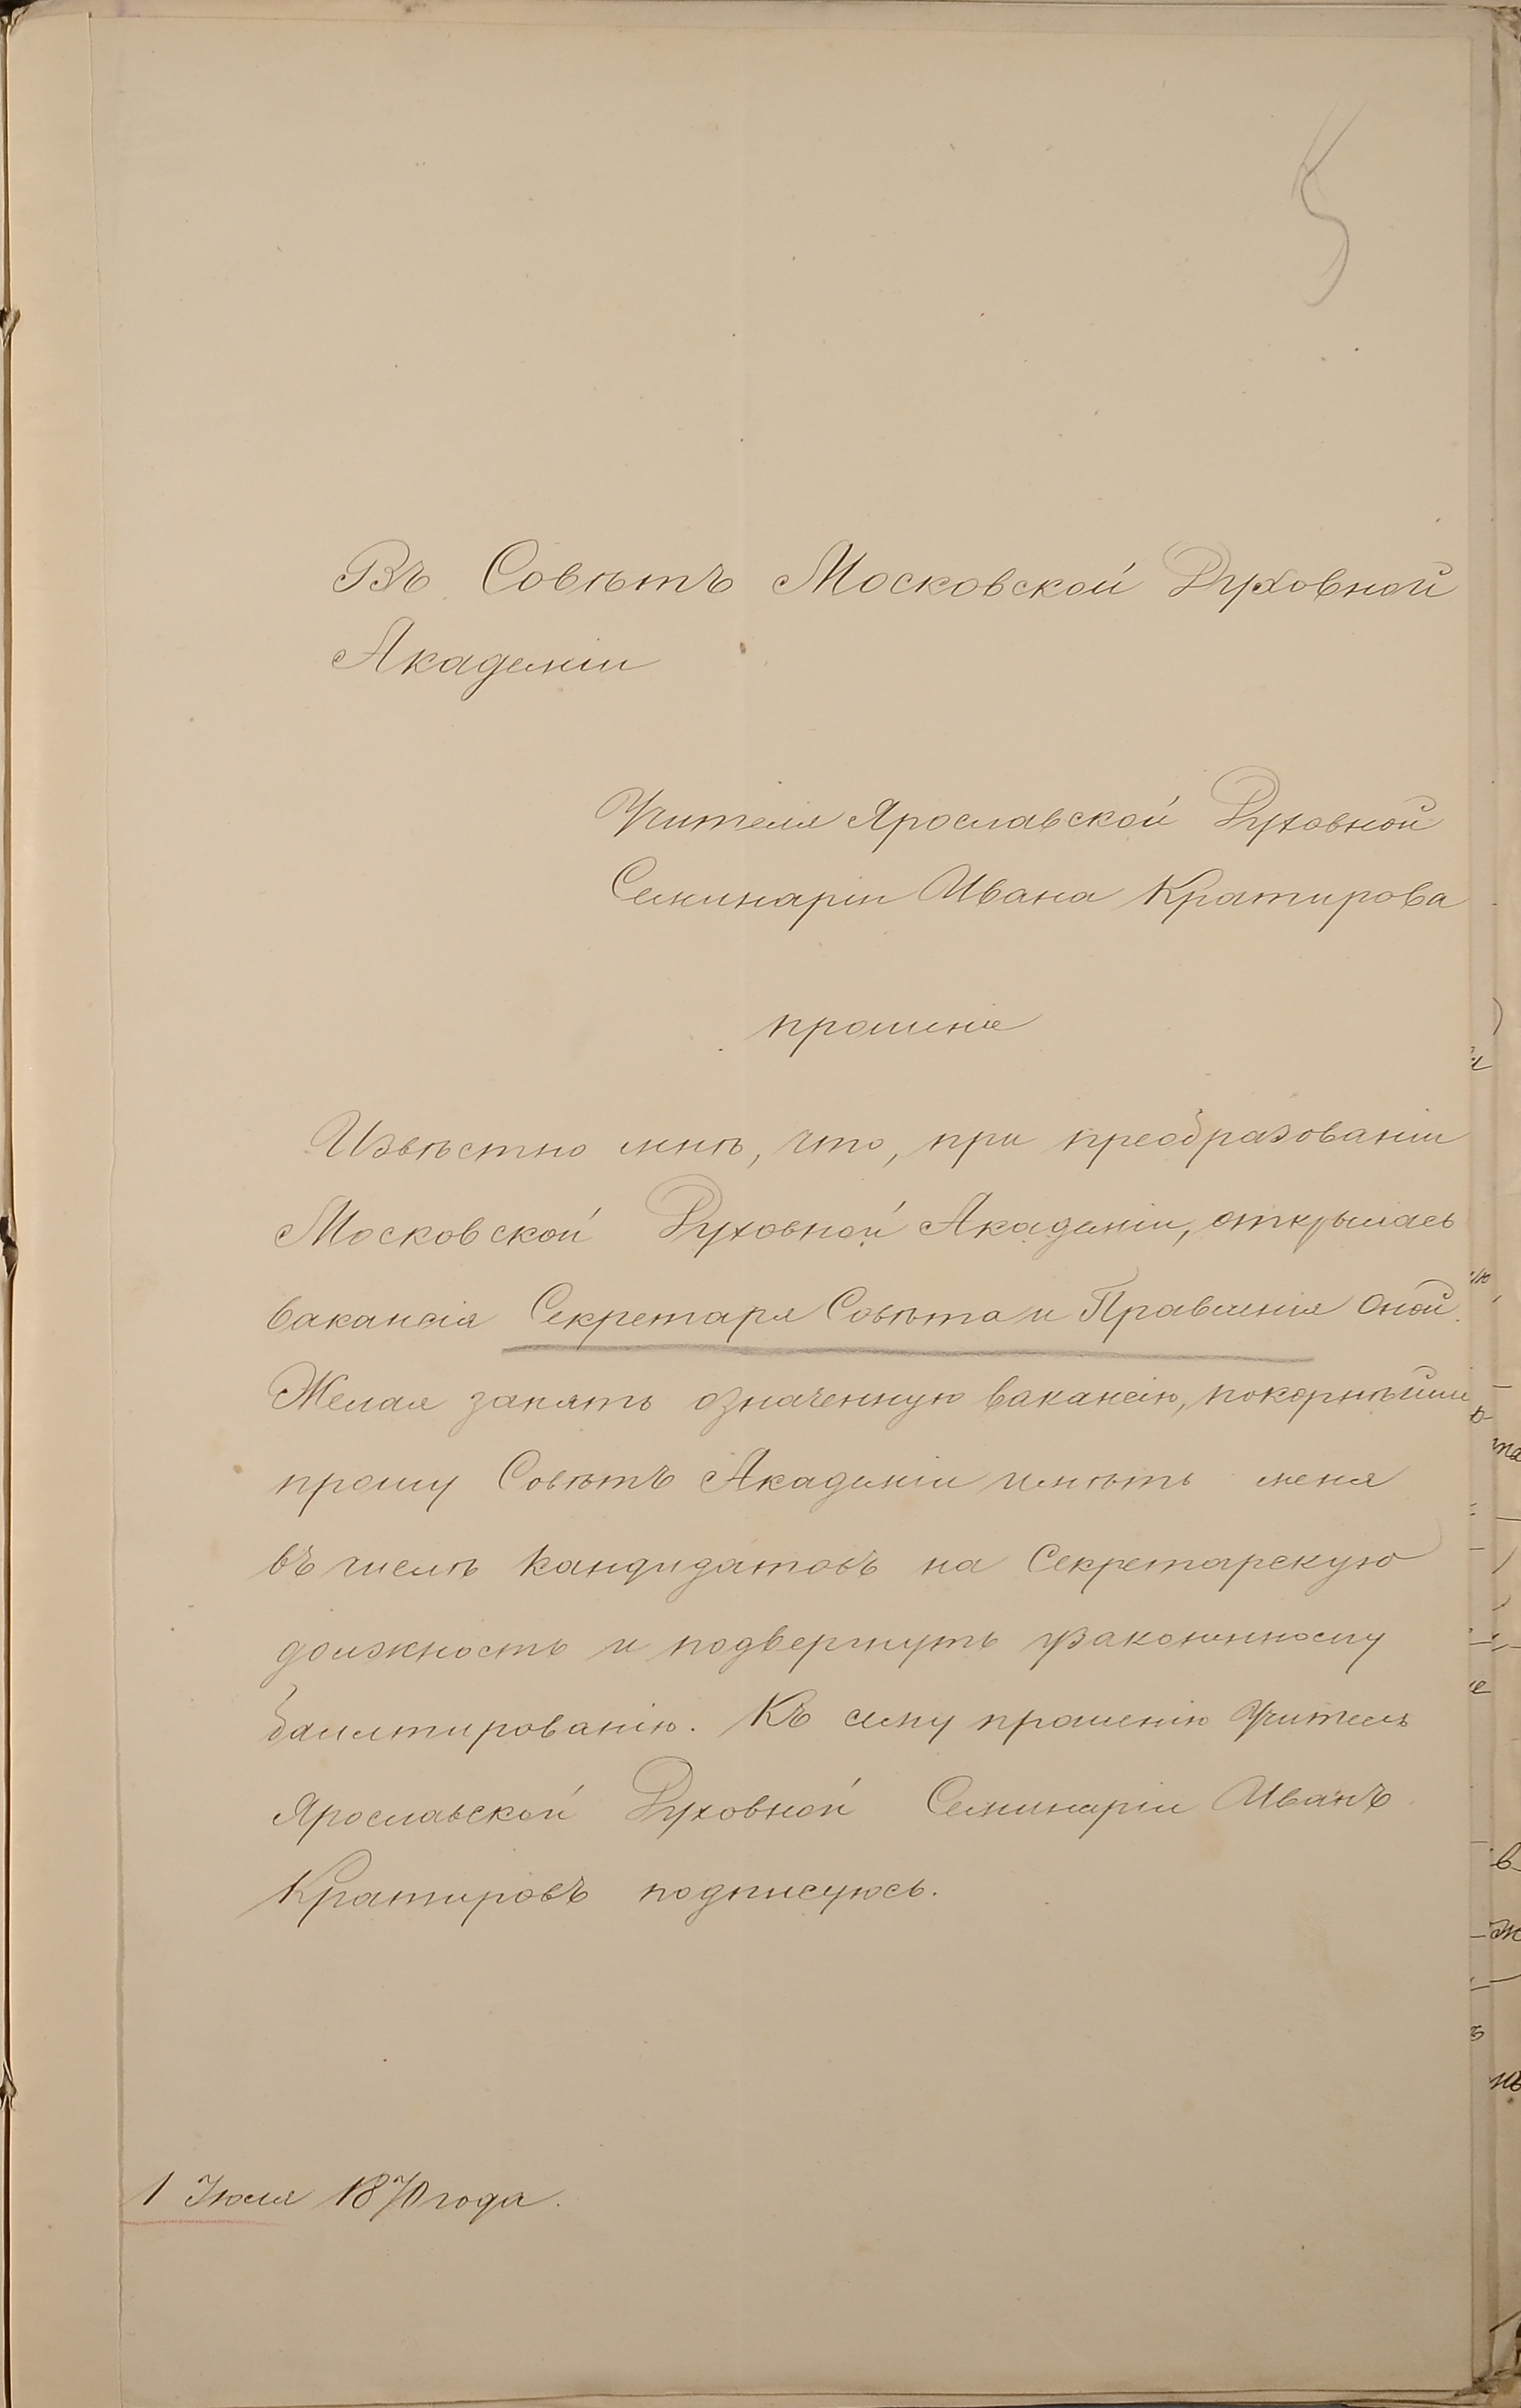 5
Въ Совѣтъ Московской Духовной
Академіи
Учителя Ярославской Духовной
Семинаріи Ивана Кратирова
прошеніе
Извѣстно мнѣ, что, при преобразованіи
Московской Духовной Академіи, открылась
вакансія Секретаря Совѣта и Правленія оной.
Желая занять означенную вакансію, покорнѣйше
прошу Совѣтъ Академіи имѣть меня
въ числѣ кандидатовъ на Секретарскую
должность и подвергнуть узаконенному
баллотированію. Къ сему прошенію Учитель
Ярославской Духовной Семинаріи Иванъ
Кратировъ подписуюсь.
1 Іюля 1870 года.